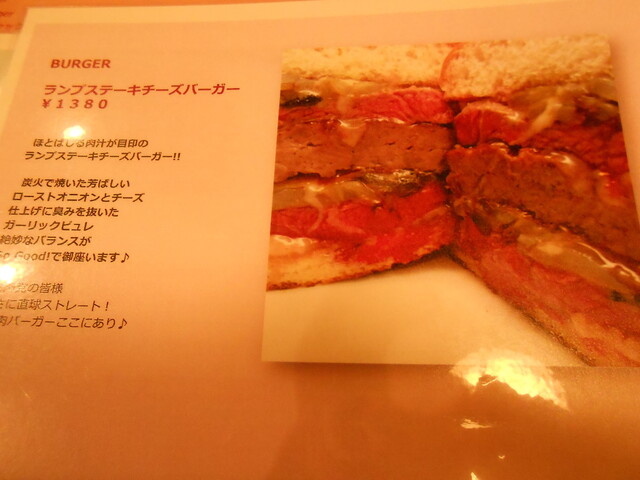 BURGER
ランプステーキチーズバーガー
¥1380
ほとばしる肉汁が目印の
ランプステーキチーズバーガー!!
炭火で焼いた芳ばしい
ローストオニオンとチーズ
仕上げに臭みを抜いた
ガーリックピュレ
絶妙なバランスが
So Good!で御座います♪
党の皆様
に直球ストレート！
肉バーガーここにあり♪